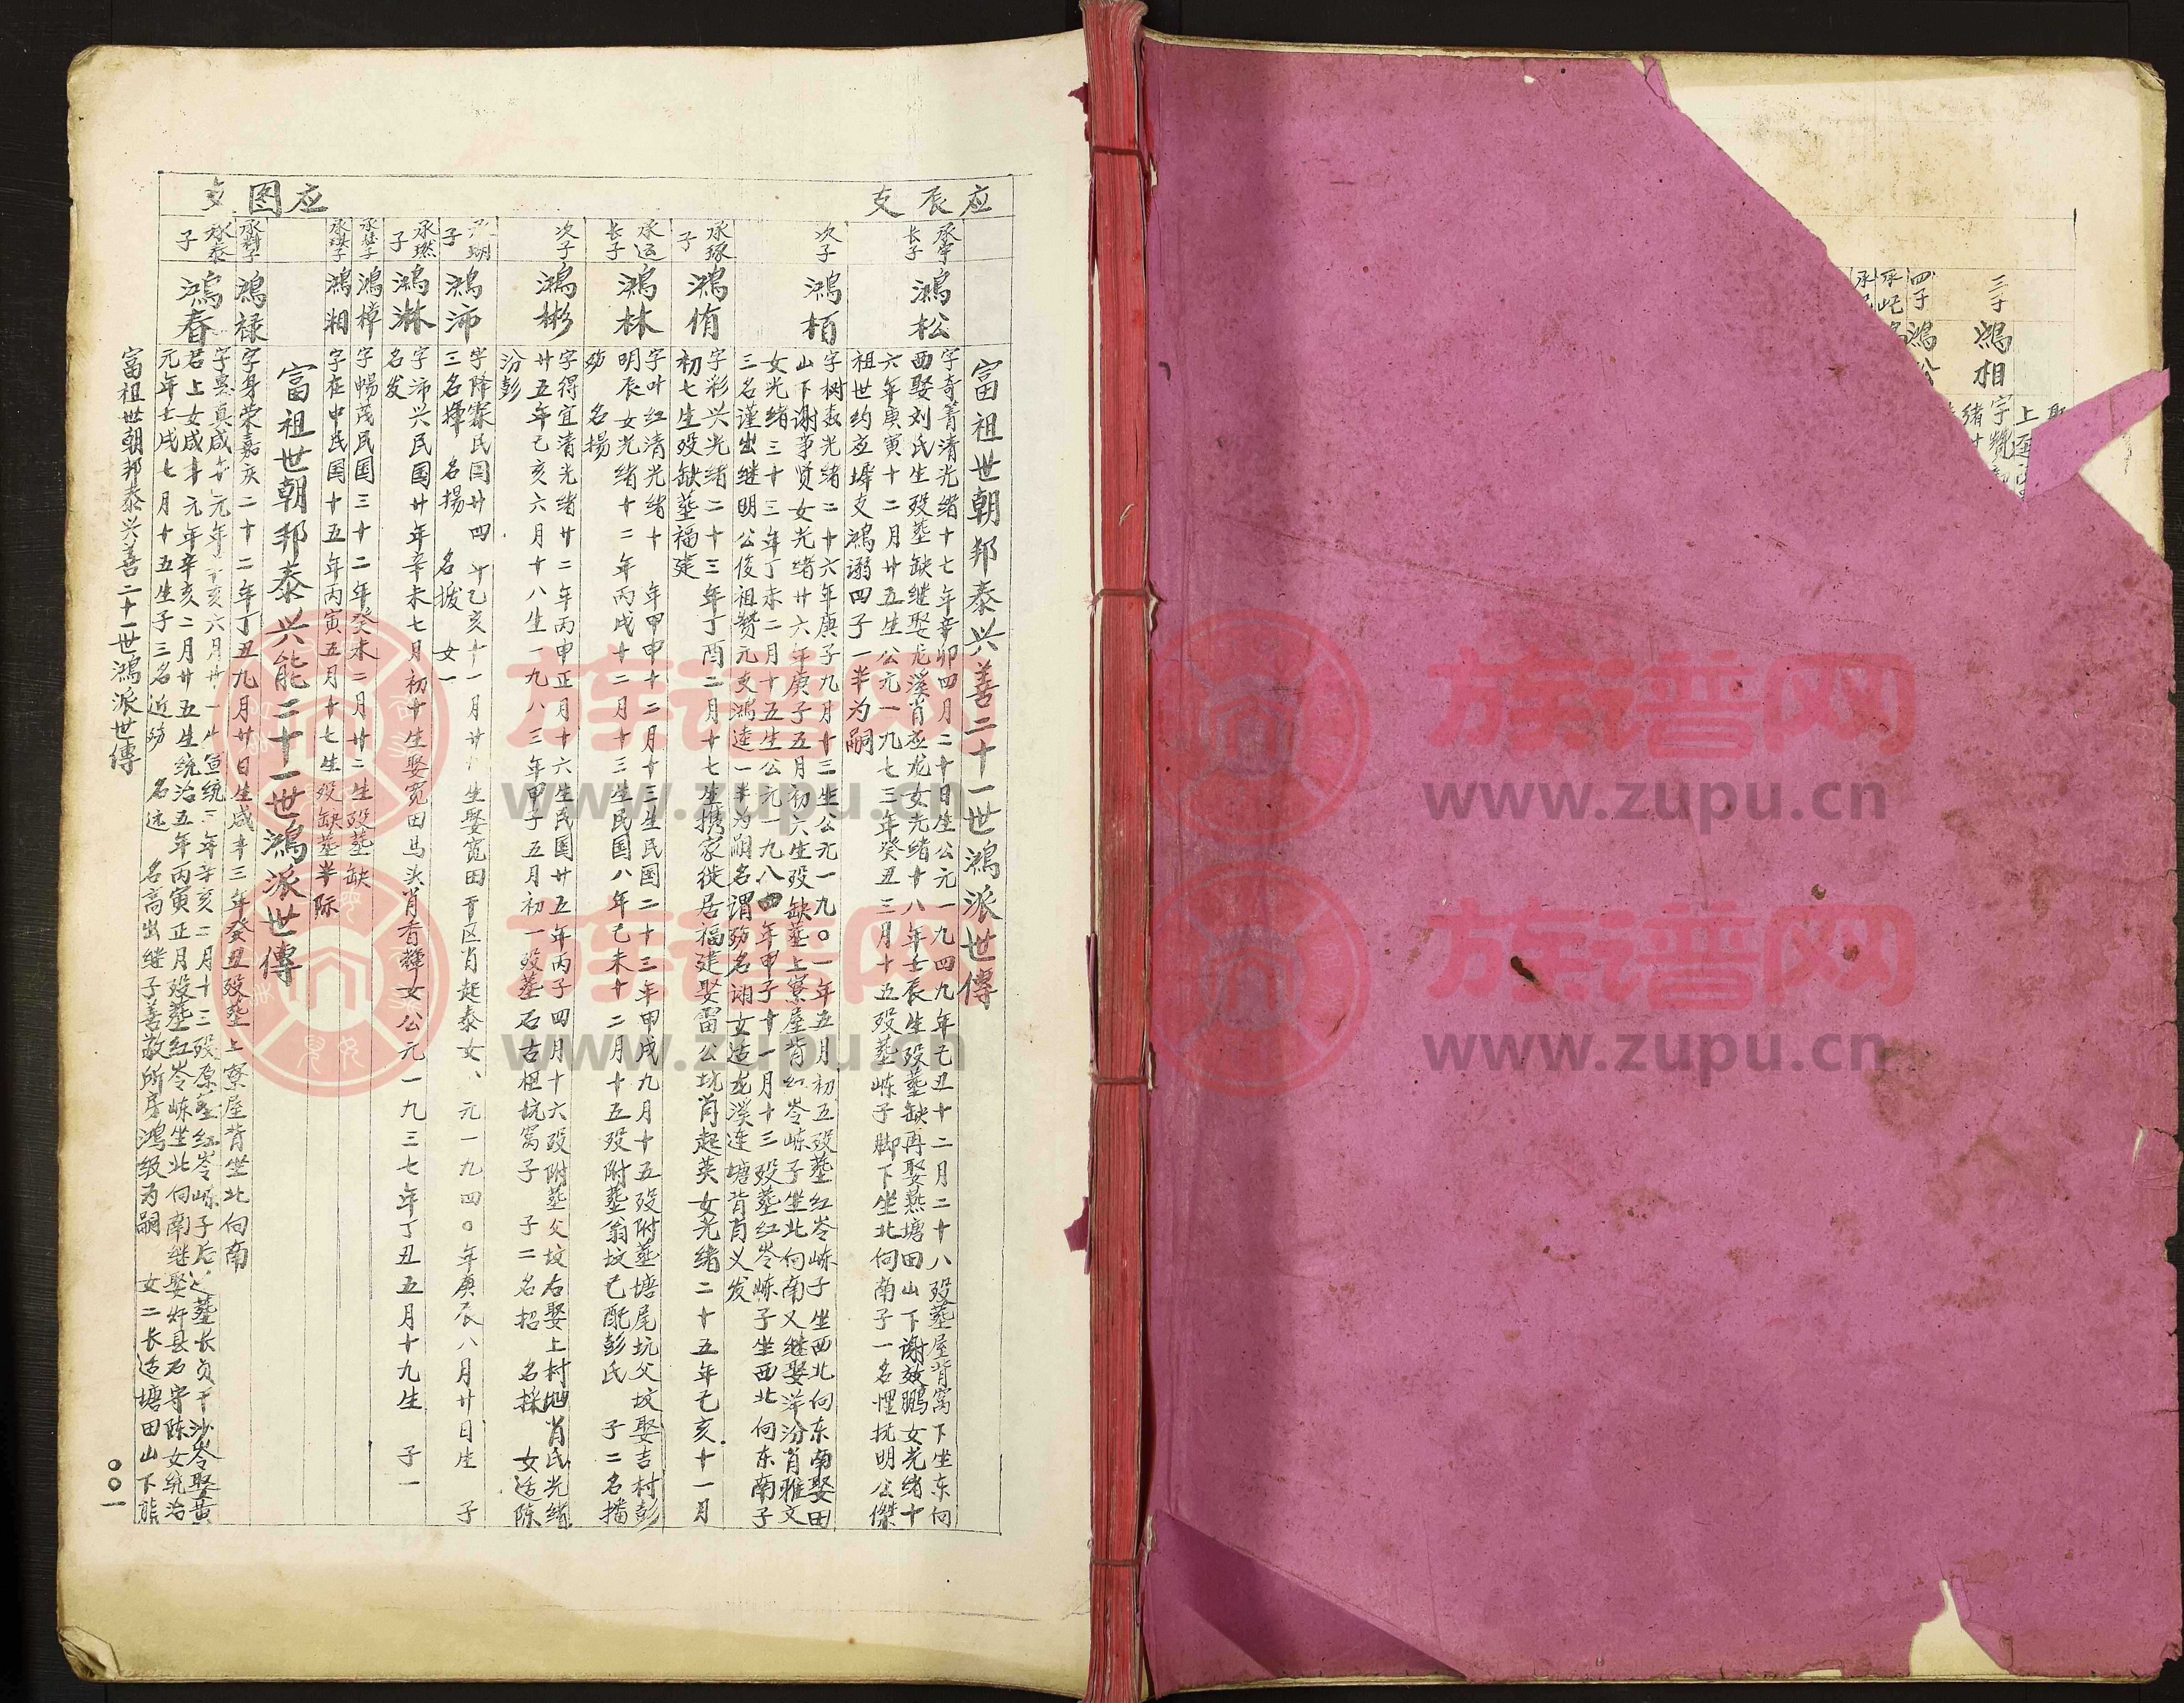 应辰支
富祖世朝邦泰兴善二十一世鸿派世傳
承宇长子
鸿松
字奇菁清光绪十七年辛卯四月二十日生公元一九四九年己丑十二月二十八殁葬屋背窝下坐东向
西娶刘氏生殁葬缺继娶龙溪肖应龙女光绪十八年壬辰生殁葬缺再娶燕塘田山下谢效鹏女光绪十
六年庚寅十二月廿五生公元一九七三年癸丑三月十五殁葬崠子脚下坐北向南子一名惺抚明公傑
祖世约应墀支鸿溺四子一半为嗣
次子
鸿栢
字树森光绪二十六年庚子九月十三生公元一九〇一年五月初五殁葬红岺崠子坐西北向东南娶田
山下谢事贤女光绪廿六年庚子五月初六生殁缺葬上寮屋背红岺崠子坐北向南又继娶洋汾肖雅文
女光绪三十三年丁未二月十五生公元一九八四年甲子十一月十三殁葬红岺崠子坐西北向东南子
三名谨出继明公俊祖赞元支鸿逵一半为嗣名谓殇名诩女适龙溪连塘背肖义发
承琢子
鸿侑
字彩兴光绪二十三年丁酉二月十七生携家徙居福建娶雷公坑肖起英女光绪二十五年己亥十一月
初七生殁缺葬福建
承运长子
鸿林
字叶红清光绪十年甲申十二月十三生民国二十三年甲戌九月十五殁附葬塘尾坑父坟娶吉村彭
明辰女光绪十二年丙戌十二月十三生民国八年己未十二月十五殁附葬翁坟已酏彭氏 子二名播
殇 名揚
次子
鸿彬
字得宜清光绪廿二年丙申正月十六生民国廿五年丙子四月十六殁附葬父坟右娶上村肖氏光绪
廿五年己亥六月十八生一九八三年甲子五月初一殁葬石古杻坑窝子 子二名招 名採 女适陈
汾彭
瑚子
鸿沛
字降霖民国廿四年乙亥十一月廿生娶宽田肖起泰女元一九四〇年庚辰八月廿日生 子
三名揮 名揚 名拔 女一
承燃子
鸿淋
字沛兴民国廿年辛未七月初十生娶宽田马头肖香輝女公元一九三七年丁丑五月十九生 子一
名发
鸿樟
字暢茂民国三十二年癸未二月廿二生殁葬缺
承琪子
鸿湘
字在中民国十五年丙寅五月十七生殁缺葬半际
应图支
富祖世朝邦泰兴能二十一世鸿派世傳
鸿禄
字身荣嘉庆二十二年丁丑九月廿日生咸丰三年癸丑殁葬上寮屋背坐北向南
承泰子
鸿春
君上女咸丰元年辛亥二月廿五生统治五年丙寅正月殁葬红岺崠坐北向南继娶圩县石守陈女统治
元年壬戌七月十五生子三名近殇 名远 名高出继子善敬所房鸿级为嗣 女二长适塘田山下熊
富祖世朝邦泰兴善二十一世鸿派世傳
〇〇一
三子
鸿相
四子
鸿
承屺
族谱网
www.zupu.cn
族谱网
www.zupu.cn
族谱网
www.zupu.cn
族谱网
www.zupu.cn